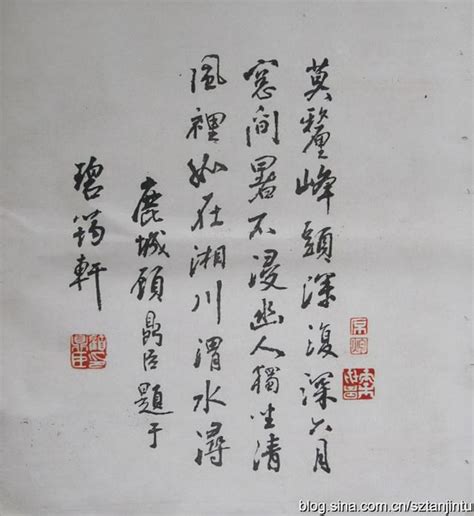 莫釐峰頭深復深六月
窓間暑不浸幽人獨坐清
風裡如在湘川渭水潯
鹿城顾鼎臣題于
碧筠軒
blog.sina.com.cn/sztanjintu